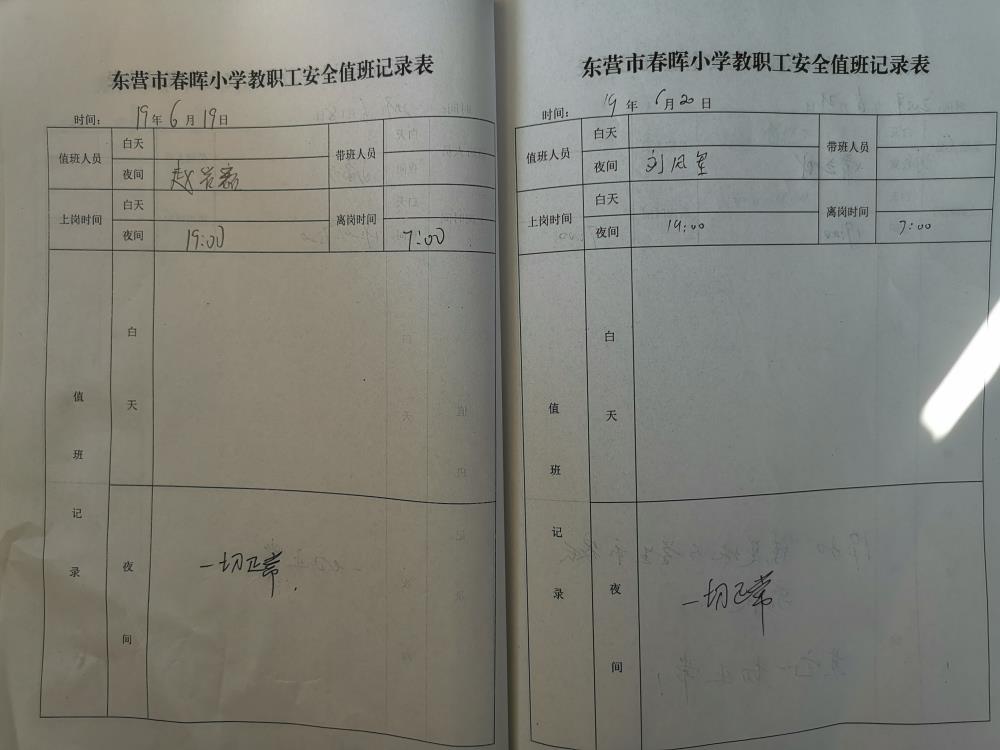 东营市春晖小学教职工安全值班记录表
时间: 19年6月19日
值班人员 白天 带班人员
夜间 赵
上岗时间 白天 离岗时间
夜间 19:00 7:00
值班记录
白天
夜间
一切正常.
东营市春晖小学教职工安全值班记录表
时间: 19年6月20日
值班人员 白天 带班人员
夜间 刘风
上岗时间 白天 离岗时间
夜间 19:00 7:00
值班记录
白天
夜间
一切正常